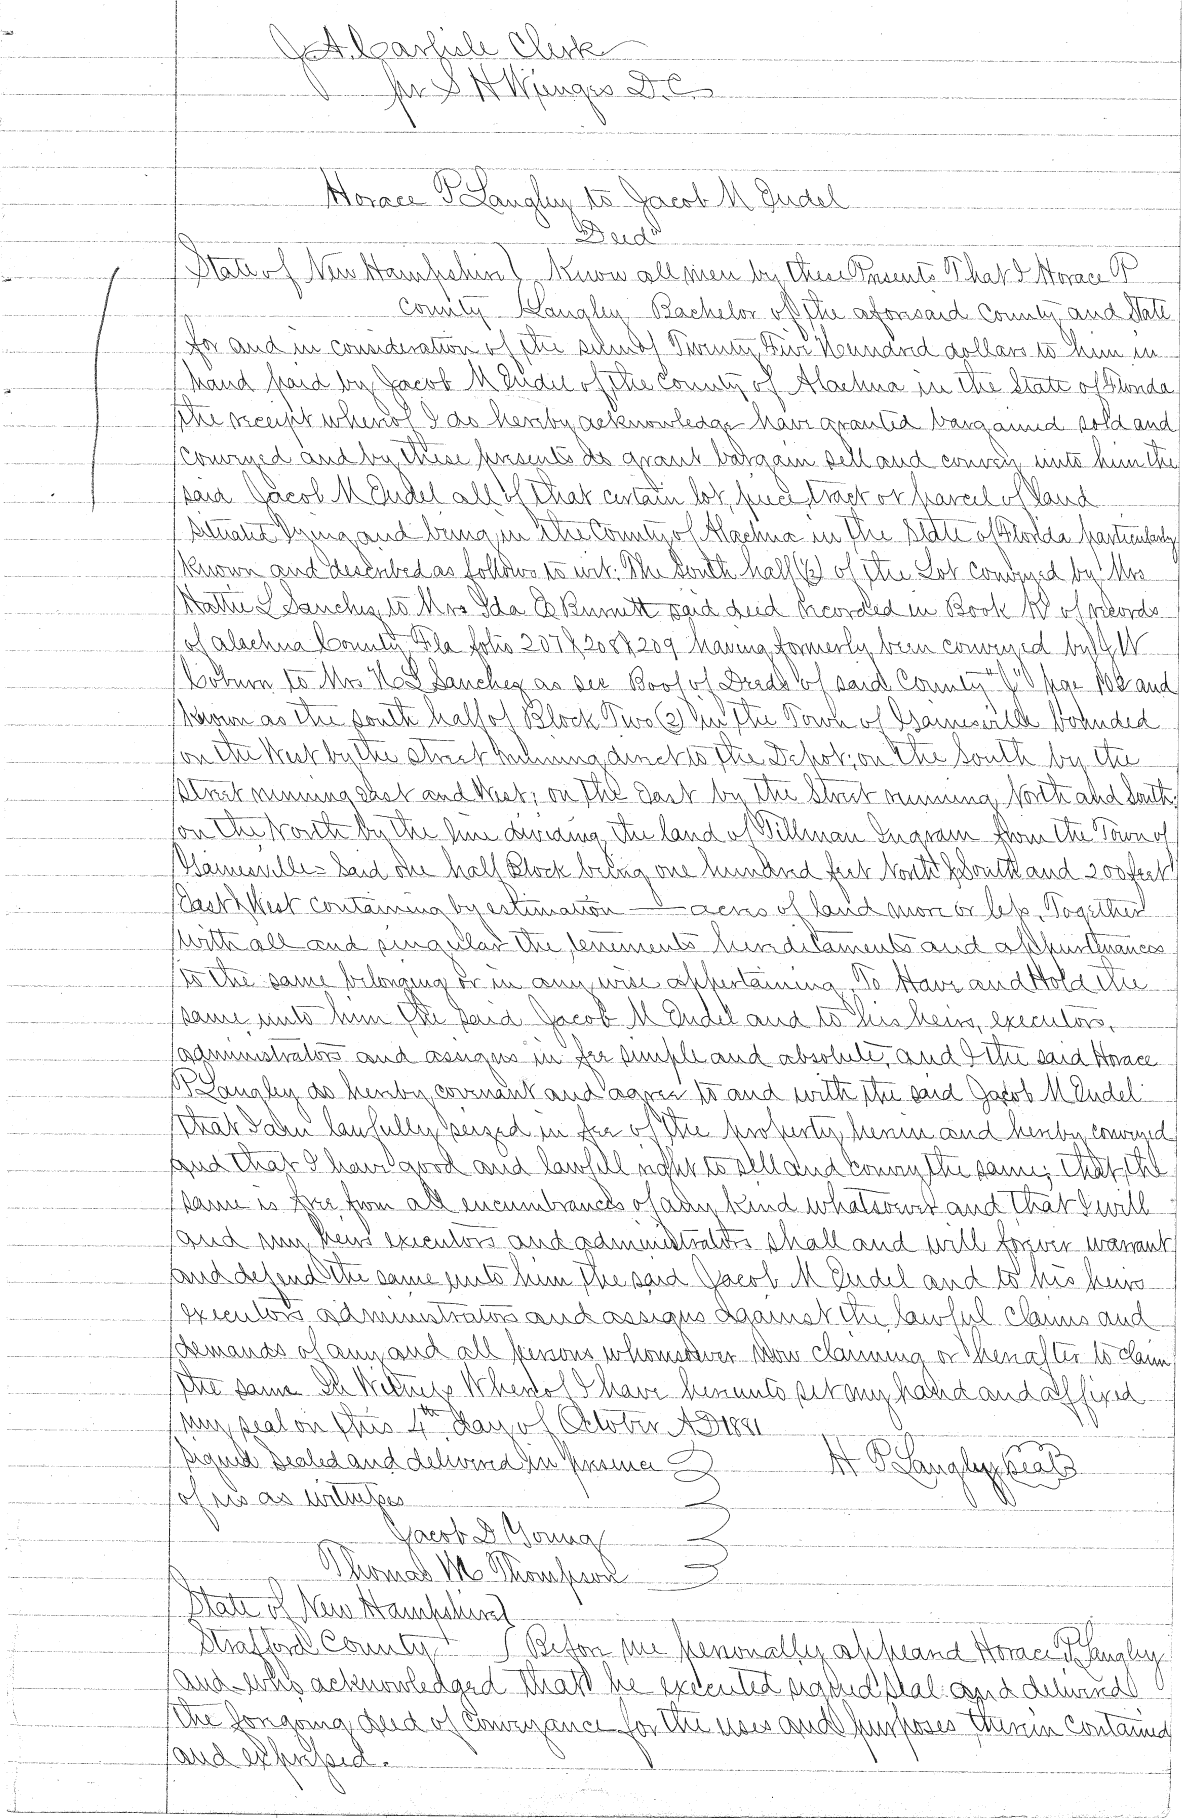 J. A. Carlisle Clerk
per S H Wienges D. C.
Horace P Langley to Jacob M Endel
"Deed"
State of New Hampshire } Know all men by these Presents That I Horace P
County } Langley Bachelor of the aforesaid County and State
for and in consideration of the sum of Twenty Five Hundred dollars to him in
hand paid by Jacob M Endel of the County of Alachua in the State of Florida
the receipt whereof I do hereby acknowledge have granted bargained sold and
conveyed and by these presents do grant bargain sell and convey unto him the
said Jacob M Endel all of that certain lot, piece, tract or parcel of land
situated lying and being in the County of Alachua in the State of Florida particularly
known and described as follows to wit: The South half (½) of the Lot conveyed by Mrs
Hattie L Sanchez to Mrs Ida Burnett said deed recorded in Book of records
of Alachua County Fla folio 207 & 208 & 209 having formerly been conveyed by J W
Coburn to Mrs H L Sanchez as see Boof of Deeds of said County page and
known as the south half of Block Two (2) in the Town of Gainesville bounded
on the West by the street running direct to the Depot; on the South by the
Street running East and West; on the East by the Street running North and South;
on the North by the line dividing the land of Tillman Ingram from the Town of
Gainesville = Said one half Block being one hundred feet North & South and 200 feet
East & West containing by estimation —— acres of land more or less. Together
with all and singular the tenements hereditaments and appurtenances
to the same belonging or in any wise appertaining. To Have and Hold the
same unto him the said Jacob M Endel and to his heirs, executors,
administrators and assigns in fee simple and absolute, and I the said Horace
P Langley do hereby covenant and agree to and with the said Jacob M Endel
that I am lawfully seized in fee of the property herein and hereby conveyed
and that I have good and lawfull right to sell and convey the same; that the
same is free from all encumbrances of any kind whatsoever and that I will
and my heirs executors and administrators shall and will forever warrant
and defend the same unto him the said Jacob M Endel and to his heirs
executors administrators and assigns against the lawful claims and
demands of any and all persons whomsoever now claiming or hereafter to claim
the same. In Witness Whereof I have hereunto set my hand and affixed
my seal on this 4th day of October AD 1881
Signed Sealed and delivered in presence H P Langley seal
of us as witnesses
Jacob D Young
Thomas M Thompson
State of New Hampshire }
Strafford County } Before me personally appeared Horace P. Langley
and who acknowledged that he executed signed seal and delivered
the foregoing deed of conveyance for the uses and purposes therein contained
and expressed.